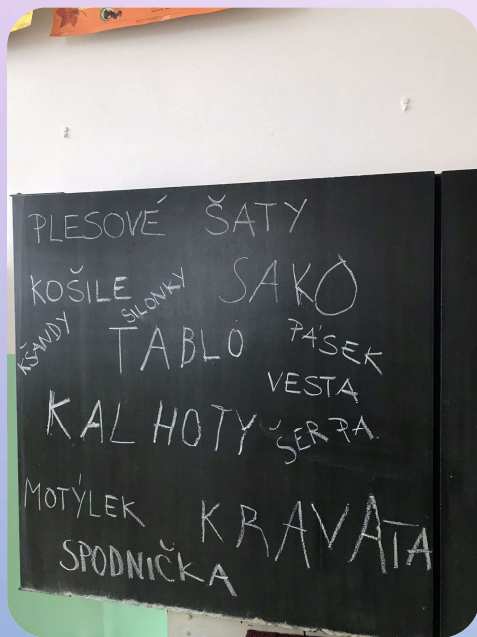 PLESOVÉ ŠATY
KOŠILE SILONKY SAKO
KŠANDY TABLO PÁSEK
VESTA
KALHOTY ŠERPA
MOTÝLEK KRAVATA
SPODNIČKA